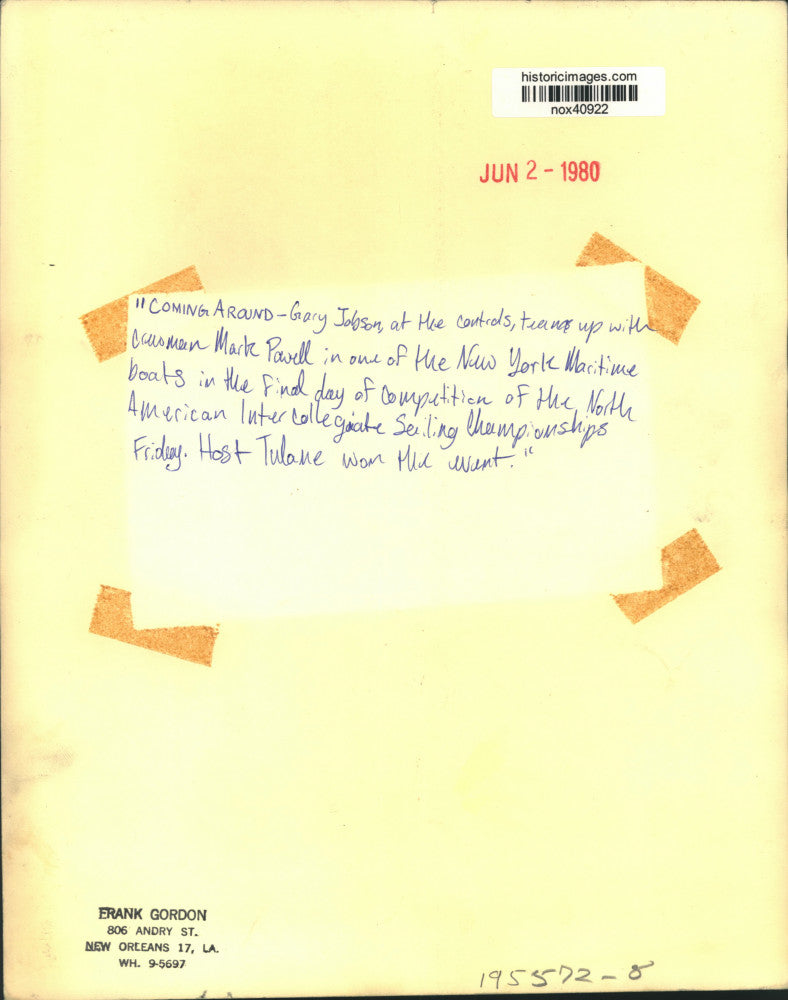 historicimages.com
nox40922
JUN 2 - 1980
"COMING AROUND - Gary Jobson, at the controls, teams up with
crewman Mark Powell in one of the New York Maritime
boats in the final day of competition of the North
American Intercollegiate Sailing Championships
Friday. Host Tulane won the event."
FRANK GORDON
806 ANDRY ST.
NEW ORLEANS 17, LA.
WH. 9-5697
195572-8